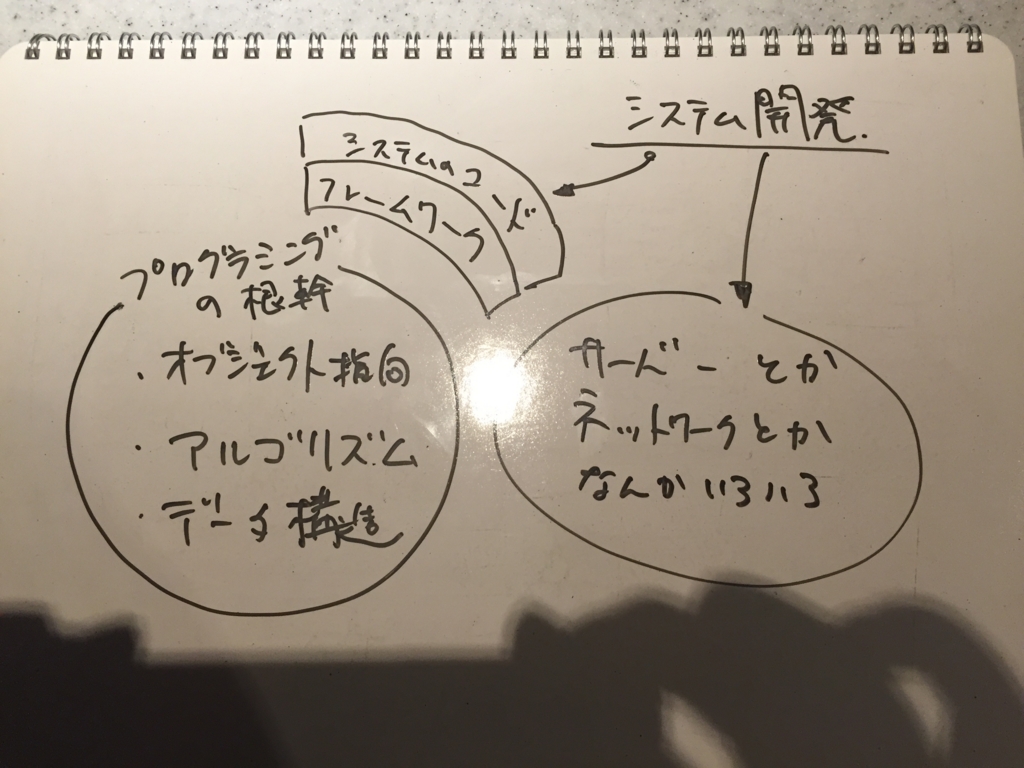 システム開発.
システムのコード
フレームワーク
プログラミング
の根幹
・オブジェクト指向
・アルゴリズム
・データ構造
サーバーとか
ネットワークとか
なんかいろいろ